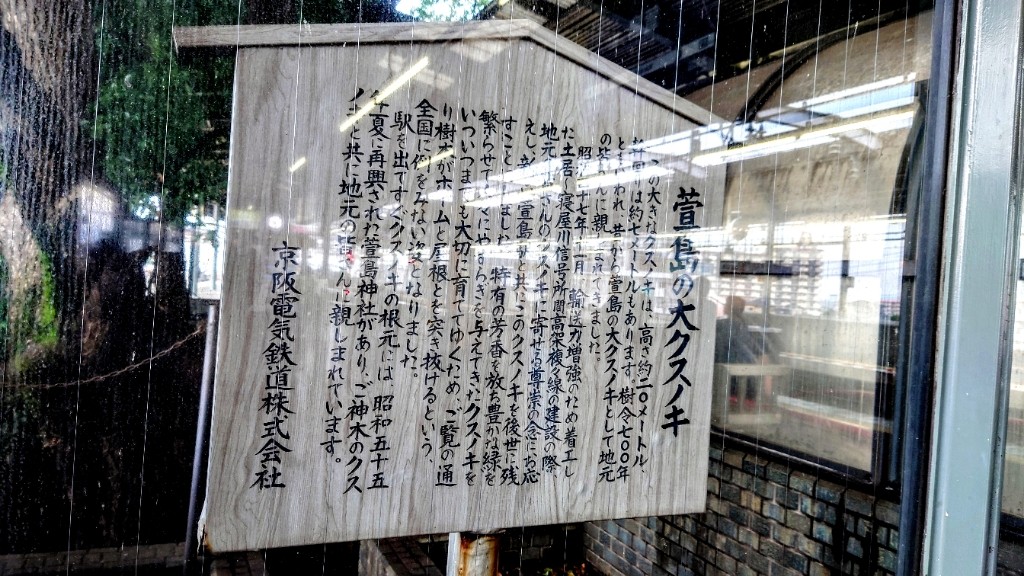 萱島の大クスノキ
この大きなクスノキは、高さ約二〇メートル、
幹周は約七メートルもあります。樹令七〇〇年
ともいわれ、昔から萱島の大クスノキとして地元
の皆さんに親しまれてきました。
昭和四十七年十一月、輸送力増強のため着工し
た土居〜寝屋川信号所間高架複々線の建設の際、
地元の皆さんのクスノキに寄せる尊崇の念にお応
えし、新しい萱島駅と共にこのクスノキを後世に残
すことにしました。特有の芳香を放ち豊かな緑を
繁らせて人々にやすらぎを与えてきたクスノキを
いついつまでも大切に育ててゆくため、ご覧の通
り樹木がホームと屋根とを突き抜けるという、
全国に例をみない姿となりました。
駅を出てすぐクスノキの根元には、昭和五十五
年夏に再興された萱島神社があり、ご神木のクス
ノキと共に地元の皆さんに親しまれています。
京阪電気鉄道株式会社